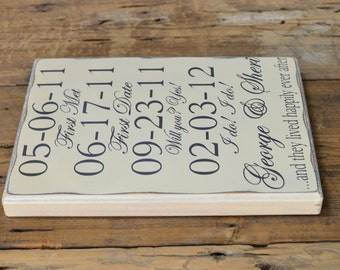 05-06-11
First Met
06-17-11
First Date
09-23-11
Will you? Yes!
02-03-12
I do! I do!
George & Sheri
...and they lived happily ever after